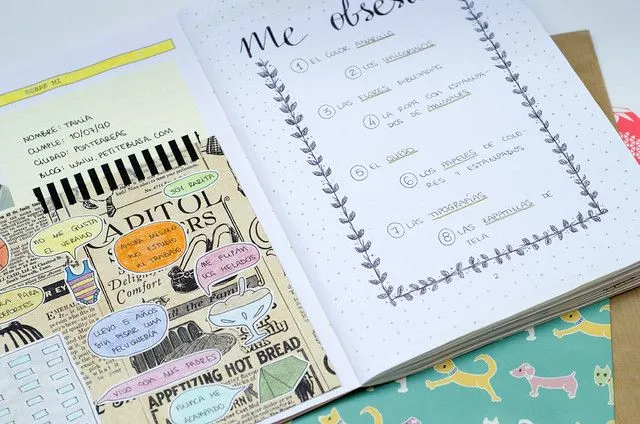 SOBRE MI
NOMBRE: TANIA
CUMPLE: 10/07/90
CIUDAD: PONTEAREAS
BLOG: WWW.PETITEBLASA.COM
SOY RARITA
NO ME GUSTA
EL VERANO
CAPITOL
AHORA MISMO
NO ESTUDIO
NI TRABAJO
ME FLIPAN
LOS HELADOS
Delig
Comfort
the Family
PARA
DEPORTES
LLEVO 5 AÑOS
SIN PISAR UNA
PELUQUERÍA
VIVO CON MIS PADRES
APPETIZING HOT BREAD
NUNCA HE
ACAMPADO
Me obses
1 EL COLOR AMARILLO
2 LOS UNICORNIOS
3 LAS FLORES DIBUJADAS
4 LA ROPA CON ESTAMPA-
DOS DE ANIMALES
5 EL QUESO
6 LOS PAPELES DE COLO-
RES Y ESTAMPADOS
7 LAS TIPOGRAFÍAS
8 LAS ZAPATILLAS DE
TELA
2